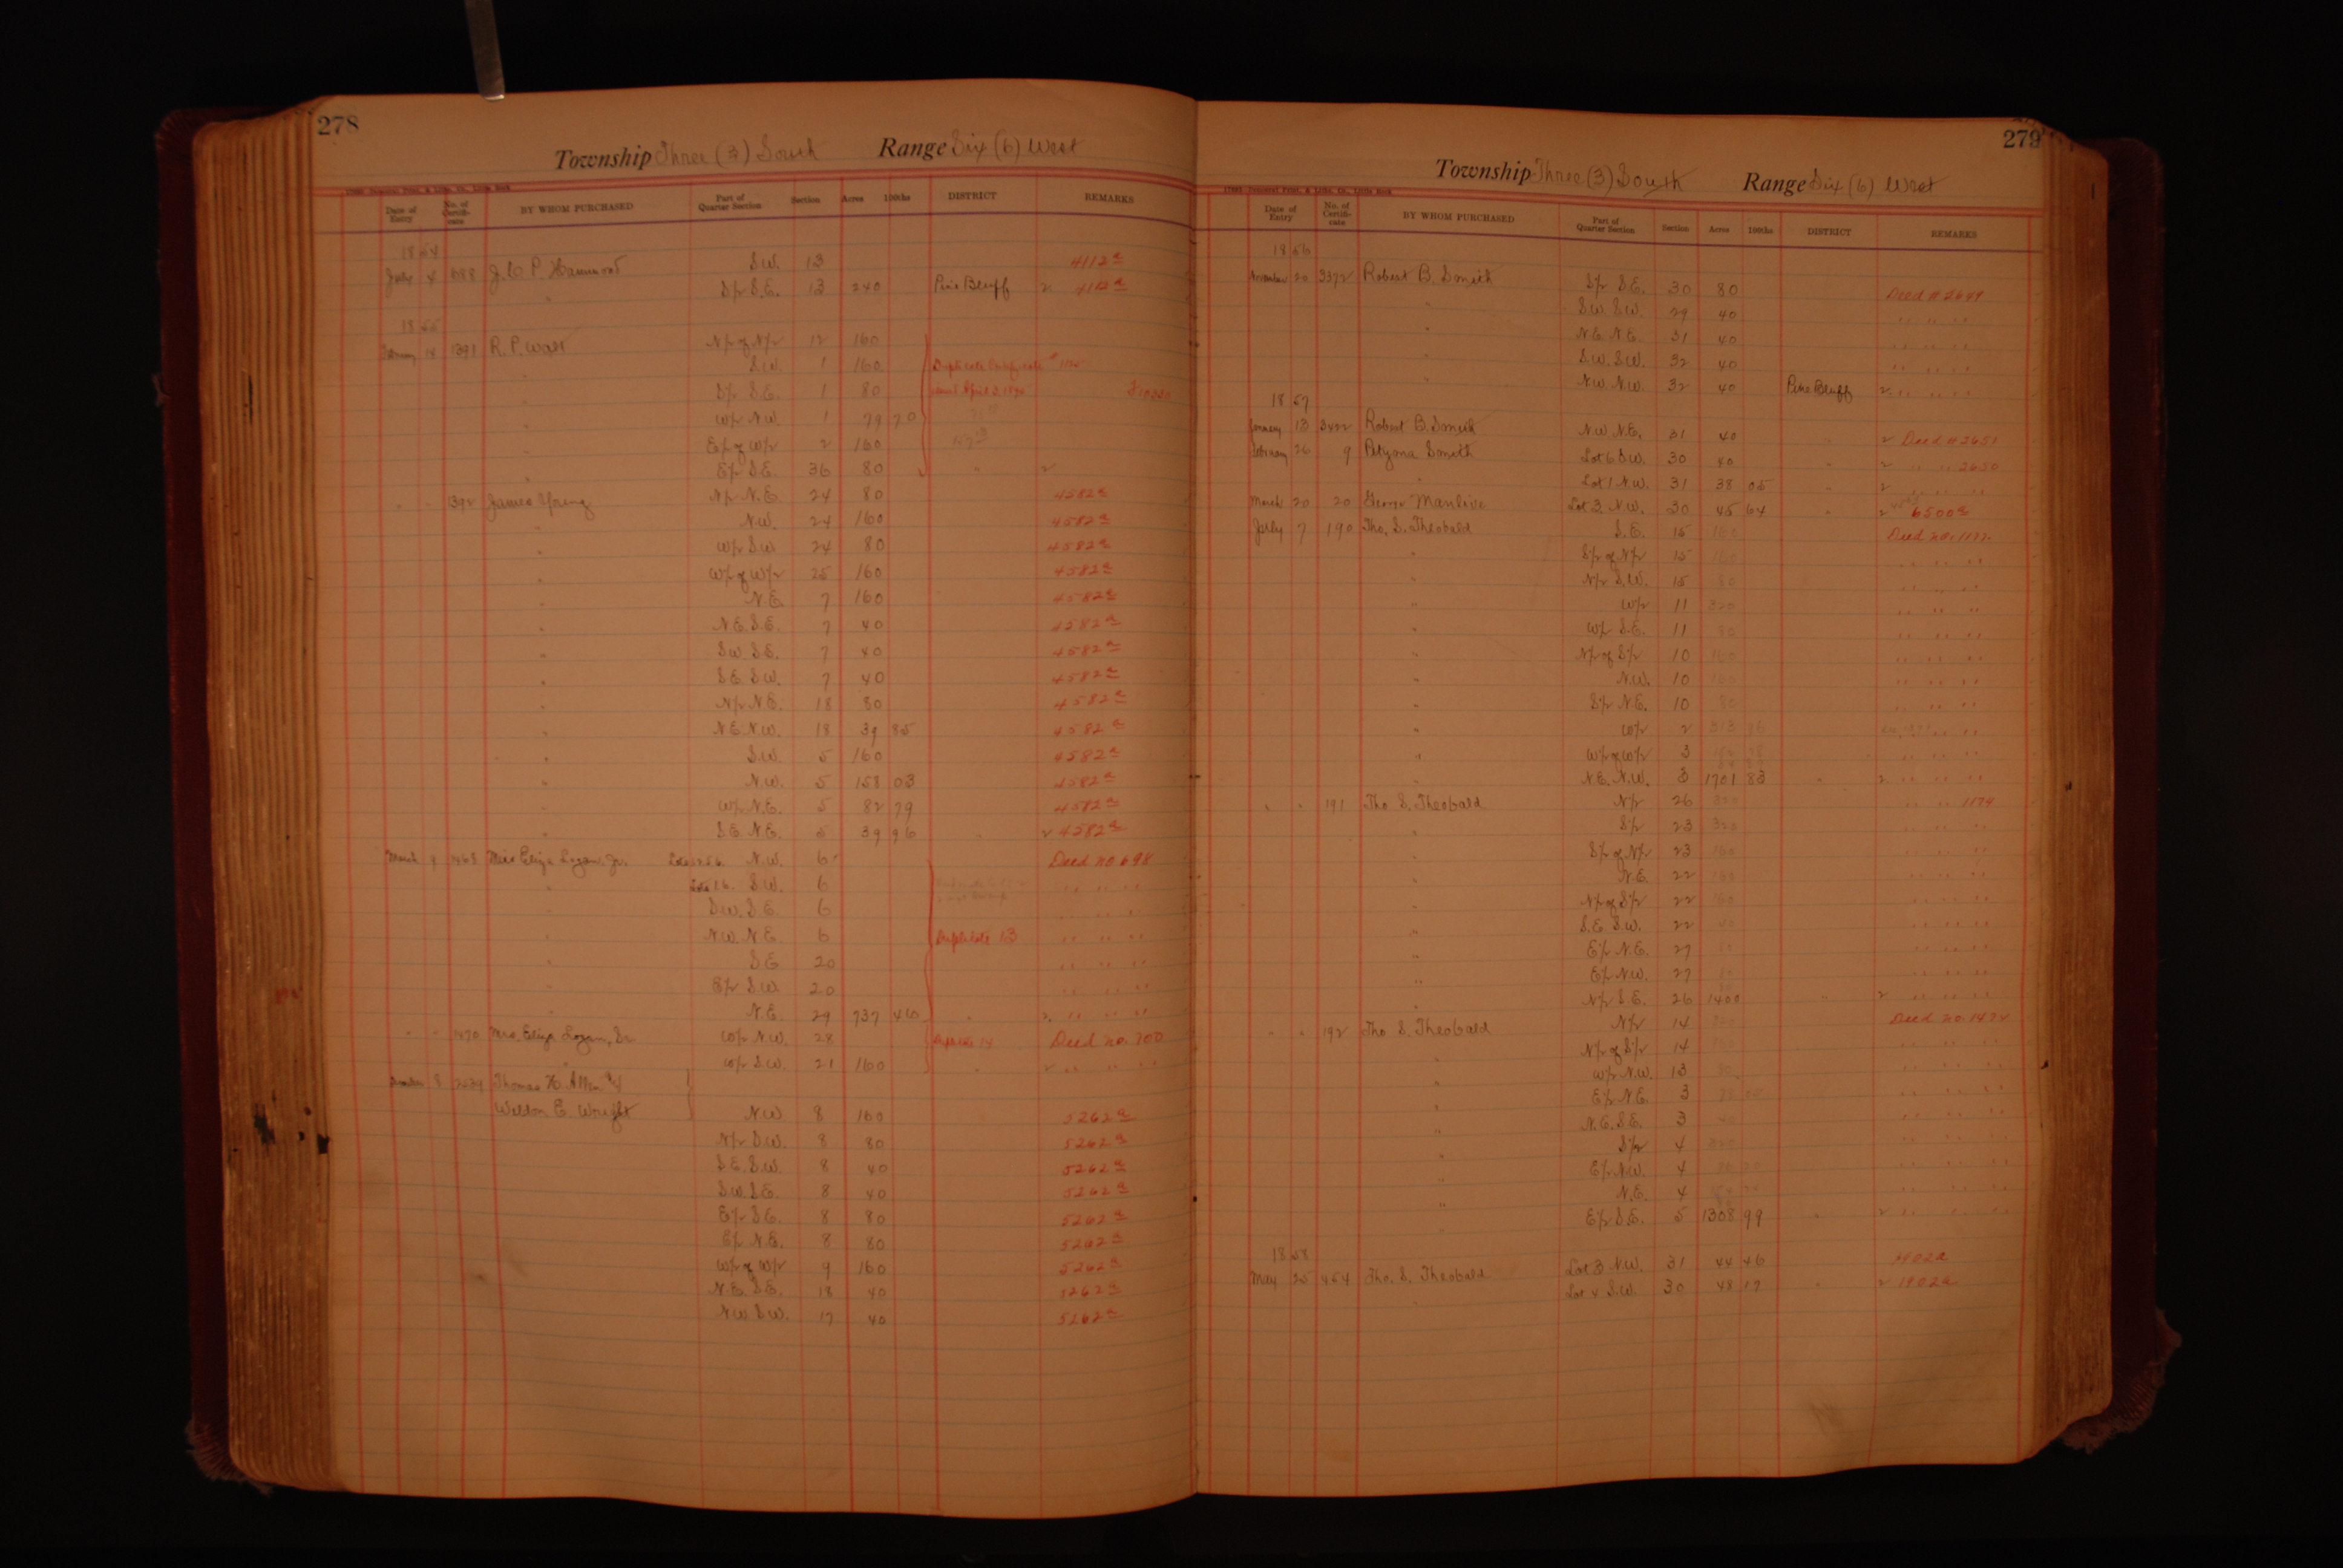 278
Township Three (3) South Range Six (6) West
Date of Entry No. of Certifi-cate BY WHOM PURCHASED Part of Quarter Section Section Acres 100ths DISTRICT REMARKS
1854
July 4 S.W. 13 4112 a
" S½ S.E. 13 240 Pine Bluff 2 4112 a
18
1391 R.P. N½ of N½ 12 160
" S.W. 1 160 Duplicate Certificate
" S½ S.E. 1 80
" W½ N.W. 1 79 70
" E½ of W½ 2 160
" E½ S.E. 36 80 " 2
" " 1392 James N½ N.E. 24 80 4582 a
" N.W. 24 160 4582 a
" W½ S.W. 24 80 4582 a
" W½ of W½ 25 160 4582 a
" N.E. 7 160 4582 a
" N.E. S.E. 7 40 4582 a
" S.W. S.E. 7 40 4582 a
" S.E. S.W. 7 40 4582 a
" N½ N.E. 18 80 4582 a
" N.E. N.W. 18 39 85 4582 a
" S.W. 5 160 4582 a
" N.W. 5 158 03 4582 a
" W½ N.E. 5 82 79 4582 a
" S.E. N.E. 5 39 96 " 2 4582 a
March 9 Miss Eliza Logan, Jr. N.W. 6 Deed no. 698
" S.W. 6 " " "
" S.W. S.E. 6 " " "
" N.W. N.E. 6 Duplicate 13 " " "
" S.E. 20 " " "
" E½ S.W. 20 " " "
" N.E. 29 737 40 " 2 " " "
" " 1470 Mrs. Eliza Logan, Sr. W½ N.W. 28 Duplicate 14 Deed no. 700
" W½ S.W. 21 160 " 2 " " "
8 Thomas H. Allen &
Weldon E. Wright N.W. 8 160 5262 a
N½ S.W. 8 80 5262 a
S.E. S.W. 8 40 5262 a
S.W. S.E. 8 40 5262 a
E½ S.E. 8 80 5262 a
E½ N.E. 8 80 5262 a
W½ of W½ 9 160 5262 a
N.E. S.E. 18 40 5262 a
N.W. S.W. 17 40 5262 a
279
Township Three (3) South Range Six (6) West
Date of Entry No. of Certifi-cate BY WHOM PURCHASED Part of Quarter Section Section Acres 100ths DISTRICT REMARKS
1856
November 20 3372 Robert B. Smith S½ S.E. 30 80 Deed # 2649
" S.W. S.W. 29 40 " " "
" N.E. N.E. 31 40 " " "
" S.W. S.W. 32 40 " " "
" N.W. N.W. 32 40 Pine Bluff 2 " " "
1857
January 13 3402 Robert B. Smith N.W. N.E. 31 40 " 2 Deed # 2651
February 26 9 Smith Lot 6 S.W. 30 40 " 2 " " 2650
" Lot 1 N.W. 31 38 05 " 2 " " "
March 20 20 George Manlove Lot 3 N.W. 30 45 64 " 2 6500 a
July 7 190 Tho. S. Theobald S.E. 15 160 Deed no. 1177
" S½ of N½ 15 160 " " "
" N½ S.W. 15 80 " " "
" W½ 11 320 " " "
" W½ S.E. 11 80 " " "
" N½ of S½ 10 160 " " "
" N.W. 10 160 " " "
" S½ N.E. 10 80 " " "
" W½ 2 313 86 " "
" W½ of W½ 3 " " "
" N.E. N.W. 3 1701 83 " 2 " " "
" " 191 Tho S. Theobald N½ 26 320 " " 1174
" S½ 23 320 " " "
" S½ of N½ 23 160 " " "
" N.E. 22 160 " " "
" N½ of S½ 22 160 " " "
" S.E. S.W. 22 40 " " "
" E½ N.E. 27 80 " " "
" E½ N.W. 27 80 " " "
" N½ S.E. 26 1400 " 2 " " "
" " 192 Tho S. Theobald N½ 14 320 Deed no. 1472
" N½ of S½ 14 160 " " "
" W½ N.W. 13 80 " " "
" E½ N.E. 3 " " "
" N.E. S.E. 3 40 " " "
" S½ 4 320 " " "
" E½ N.W. 4 " " "
" N.E. 4 " " "
" E½ S.E. 5 1308 99 " 2 " " "
1858
May 25 454 Tho. S. Theobald Lot 3 N.W. 31 44 46 1902 a
" Lot S.W. 30 48 17 " 2 1902 a